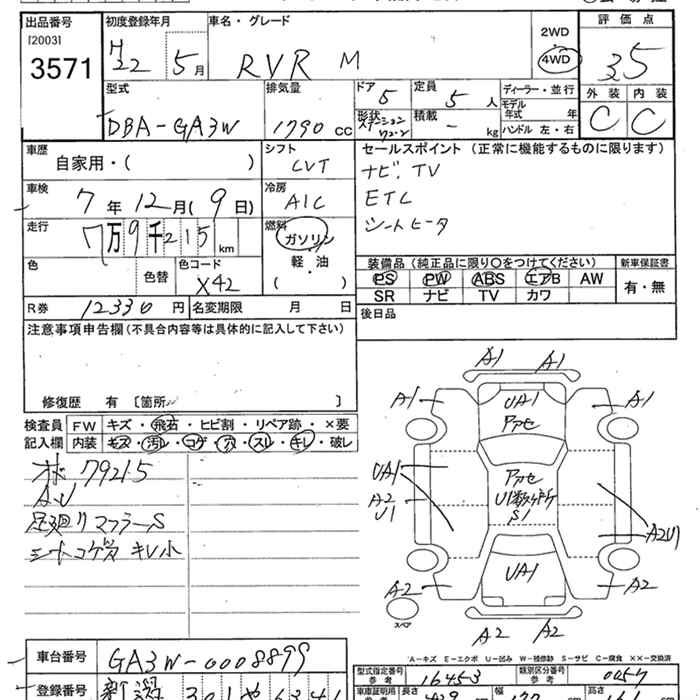 出品番号 初度登録年月 車名・グレード 評価点
[2003] H22 5月 RVR M 2WD 4WD 3.5
3571
型式 排気量 ドア 5 定員 5人 ディーラー・並行 外装 内装
DBA-GA3W 1790cc 形状 ステーションワゴン 積載 - kg モデル年式 年 C C
ハンドル 左・右
車歴 シフト セールスポイント (正常に機能するものに限ります)
自家用・( ) CVT ナビ、TV
車検 冷房 ETC
7年 12月 (9日) A/C シートヒータ
走行 燃料
7万9千215km ガソリン
色 色替 色コード 軽・油 装備品 (純正品に限り○をつけてください) 新車保証書
X42 ( ) PS PW ABS エアB AW 有・無
SR ナビ TV カワ
R券 12330円 名変期限 月 日 後日品
注意事項申告欄 (不具合内容等は具体的に記入して下さい)
修復歴 有 [箇所 ]
検査員 FW キズ・飛石・ヒビ割・リペア跡・×要
記入欄 内装 キズ・汚レ・コゲ・穴・スレ・キレ・破レ
79215
足廻り マフラーS
シートコゲ穴 キレ小
A1 A1
A1 UA1 A1
アカセ
UA1 アカセ
A2 U1数ヶ所
U1 S1 A2U1
UA1
A2 A2
スペア
A2 A2
A-キズ E-エクボ U-凹み W-補修跡 S-サビ C-腐食 XX-交換済
車台番号 GA3W-0008899 型式指定番号 16453 類別区分番号 0057
参考 参考
登録番号 長さ 幅 高さ